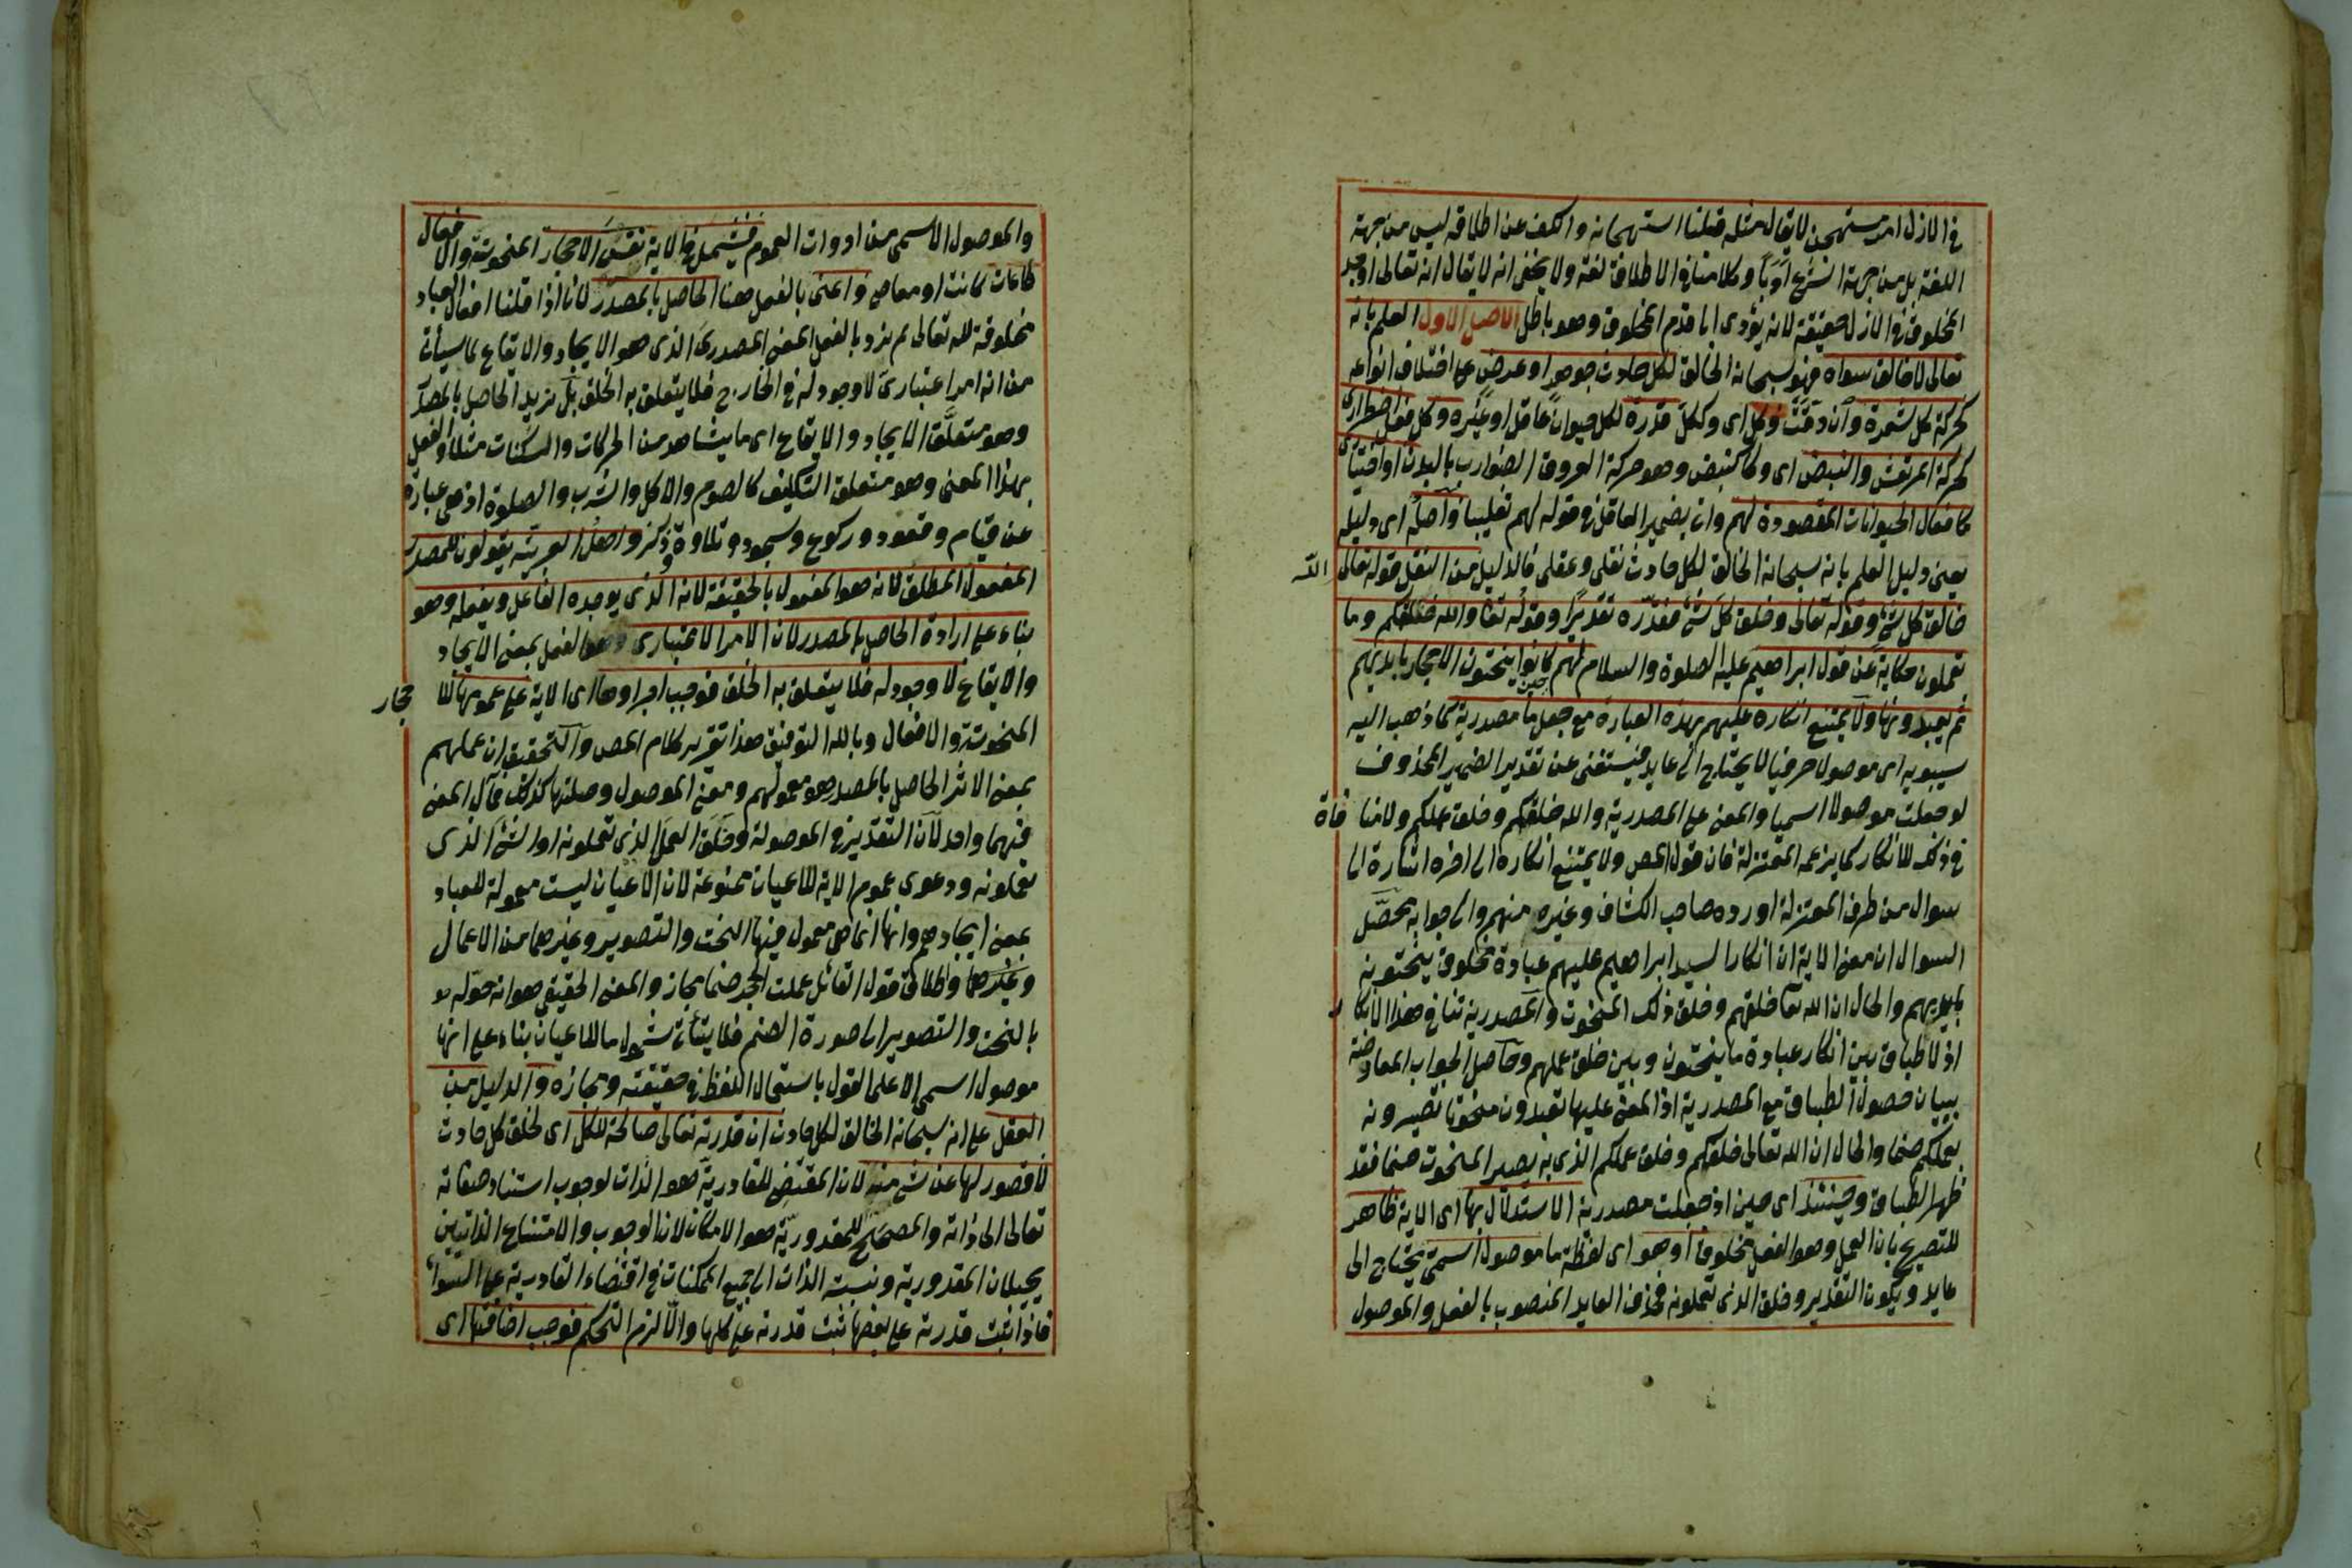 في الازل امر مستهجن لا يقال مثله قلنا استهجانه والكف عن اطلاقه ليس من جهة
اللغة بل من جهة الشرع ادبا وكلامنا في الاطلاق لغة ولا يخفى انه لا يقال انه تعالى اوجد
المخلوق في الازل حقيقة لانه يؤدى الى قدم المخلوق وهو باطل الاصل الاول العلم بانه
تعالى لا خالق سواه فهو سبحانه الخالق لكل حادث جوهر او عرض على اختلاف انواعه
كحركة كل شعرة وان دقت وكل اى وكل قدرة لكل حيوان عاقل او غيره وكل فعل اضطرارى
كحركة المرتعش والنبض اى وكالنبض وهو حركة العروق الضوارب بالبدن او اختيارى
كافعال الحيوانات المقصودة لهم واتى بضمير العاقل في قوله لهم تغليبا واصله اى دليله
يعنى دليل العلم بانه سبحانه الخالق لكل حادث نقلى وعقلى فالدليل من النقل قوله تعالى الله
خالق كل شئ وقوله تعالى وخلق كل شئ فقدره تقديرا وقوله تعا والله خلقكم وما
تعملون حكاية عن قول ابراهيم عليه الصلوة والسلام لهم حين كانوا ينحتون الاحجار بايديهم
ثم يعبدونها ولا يمتنع انكاره عليهم بهذه العبارة مع جعل ما مصدرية كما ذهب اليه
سيبويه اى موصولا حرفيا لا يحتاج الى عايد فيستغنى عن تقدير الضمير المحذوف
لو جعلت موصولا اسميا والمعنى على المصدرية والله خلقكم وخلق عملكم ولا منا فاة
في ذلك للانكار كما يزعمه المعتزلة فان قول المص ولا يمتنع انكاره الى اخره اشارة الى
سوال من طرف المعتزلة اورده صاحب الكشاف وغيره منهم والى جوابه محصل
السوال ان معنى الاية ان انكار السيد ابراهيم عليهم عبادة مخلوق ينحتونه
بايديهم والحال ان الله تعا خلقهم وخلق ذلك المنحوت والمصدرية تنافى هذا الانكا ر
اذ لا طباق بين انكار عبادة ما ينحتون وبين خلق عملهم وحاصل الجواب المعارضة
ببيان حصول الطباق مع المصدرية اذ المعنى عليها تعبدون منحوتا تصيرونه
بعملكم صنما والحال ان الله تعالى خلقكم وخلق عملكم الذى به يصير المنحوت صنما فقد
ظهر الطباق وحينئذ اى حين اذ جعلت مصدرية الاستدلال بها اى الاية ظاهر
للتصريح بان العمل وهو الفعل مخلوق او هو اى لفظة ما موصول اسمى يحتاج الى
عايد ويكون التقدير وخلق الذى تعملونه فحذف العايد المنصوب بالفعل والموصول
والموصول الاسمى من ادوات العموم فيشمل في الاية نفس الاحجار المنحوتة والافعال
طاعات كانت او معاصي واعنى بالفعل هنا الحاصل بالمصدر لانا اذا قلنا افعال العباد
مخلوقة لله تعالى لم نرد بالفعل المعنى المصدرى الذى هو الايجاد والايقاع لما سيأتى
من انه امر اعتبارى لا وجود له في الخارج فلا يتعلق به الخلق بل نريد الحاصل بالمصدر
وهو متعلق الايجاد والايقاع اى ما يشاهد من الحركات والسكنات مثلا والفعل
بهذا المعنى وهو متعلق التكليف كالصوم والاكل والشرب والصلوة اذ هى عبارة
عن قيام وقعود وركوع وسجود وتلاوة وذكر واهل العربية يقولون للمصدر
المفعول المطلق لانه هو المفعول بالحقيقة لانه الذى يوجده الفاعل ويفعله وهو
بناء على ارادة الحاصل بالمصدر لان الامر الاعتبارى وهو الفعل بمعنى الايجاد
والايقاع لا وجود له فلا يتعلق به الخلق فوجب اجراوها اى الاية على عمومها للا حجار
المنحوتة والافعال وبالله التوفيق هذا تقرير كلام المص والتحقيق ان عملهم
بمعنى الاثر الحاصل بالمصدر هو معمولهم ومعنى الموصول وصلتها كذلك فمآل المعنى
فيهما واحد لان التقدير في الموصولة وخلق العمل الذى تعملونه او الشئ الذى
تعملونه ودعوى عموم الاية للاعيان ممنوعة لان الاعيان ليست معمولة للعباد
بمعنى ايجادهم وانها انما هى معمول فيها النحت والتصوير وغيرهما من الاعمال
وغيرها واطلاق قول القائل عملت الحجر صنما مجاز والمعنى الحقيقى هو انه حوله
بالنحت والتصوير الى صورة الصنم فلا يتأتى شمول ما للاعيان بناء على انها
موصول اسمى الا على القول باستعمال اللفظ في حقيقته ومجازه والدليل من
العقل على انه سبحانه الخالق لكل حادث ان قدرته تعالى صالحة للكل اى لخلق كل حادث
لا قصور لها عن شئ منه لان المقتضى للقادرية هو الذات لوجوب استناد صفاته
تعالى الى ذاته والمصحح للمقدورية هو الامكان لان الوجوب والامتناع الذاتيين
يحيلان المقدورية ونسبة الذات الى جميع الممكنات في اقتضاء القادرية على السواء
فاذا ثبت قدرته على بعضها ثبت قدرته على كلها والا لزم التحكم فوجب اضافتها اى